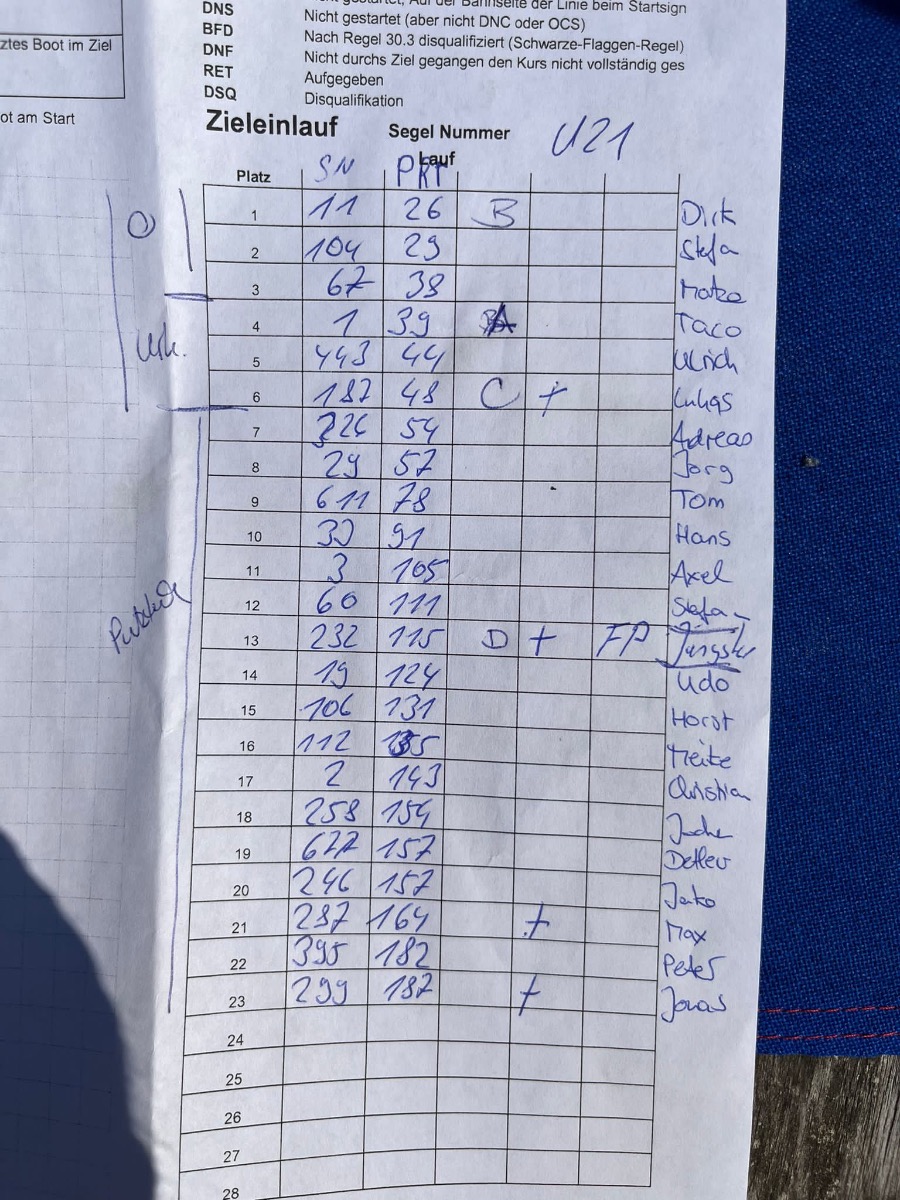 DNS Nicht gestartet, Auf der Bahnseite der Linie beim Startsign
BFD Nicht gestartet (aber nicht DNC oder OCS)
DNF Nach Regel 30.3 disqualifiziert (Schwarze-Flaggen-Regel)
RET Nicht durchs Ziel gegangen den Kurs nicht vollständig ges
DSQ Aufgegeben
Disqualifikation
ztes Boot im Ziel
ot am Start
Zieleinlauf Segel Nummer U21
Lauf
Platz SN PKT
1 11 26 B Dirk
2 104 29 Stefa
3 67 38
4 1 39 A Taco
5 443 44 Ulrich
6 187 48 C + Lukas
7 54 Adreas
8 29 57 Jörg
9 611 78 Tom
10 30 91 Hans
11 3 105 Axel
12 60 111 Stefan
13 232 115 D + FP Jüngster
14 19 124 Udo
15 106 131 Horst
16 112 135 Meike
17 2 143 Christian
18 258 154
19 677 157 Detlev
20 246 157 Jako
21 287 164 + Max
22 395 182 Peter
23 299 187 + Jonas
24
25
26
27
28
O
Urk.